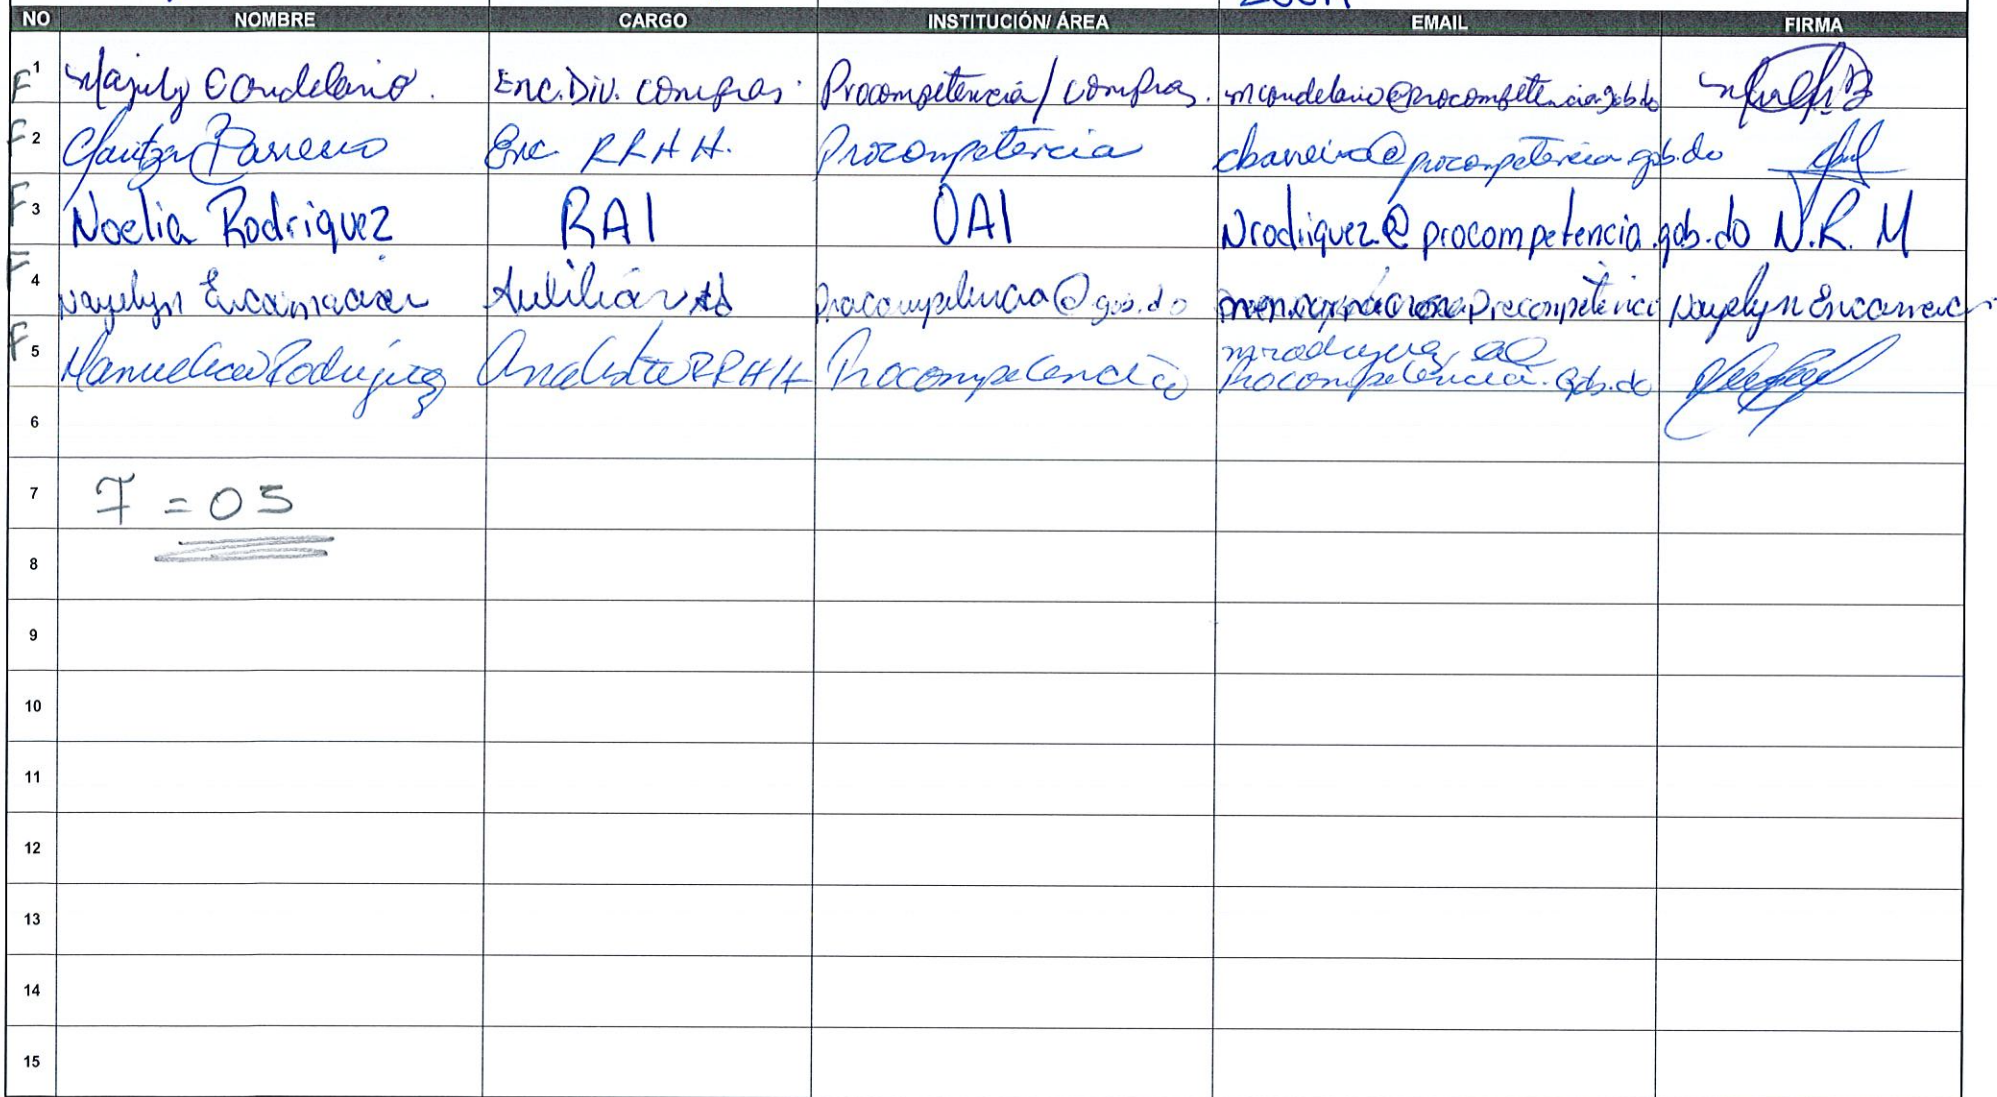 NO NOMBRE CARGO INSTITUCIÓN/ ÁREA EMAIL FIRMA
F 1 Candelario. Enc. Div. Compras. Procompetencia / Compras. mcandelario@procompetencia.gob.do
F 2 Barreiro Enc RRHH. Procompetencia cbarreiro@procompetencia.gob.do
F 3 Noelia Rodriguez RAI OAI Nrodriguez@procompetencia.gob.do N.R.M
F 4 Nayelyn Encarnación Auxiliar procompetencia@gob.do Nayelyn Encarnacion
F 5 Rodríguez Analista RRHH Procompetencia
procompetencia.gob.do
6
7 F = 05
8
9
10
11
12
13
14
15